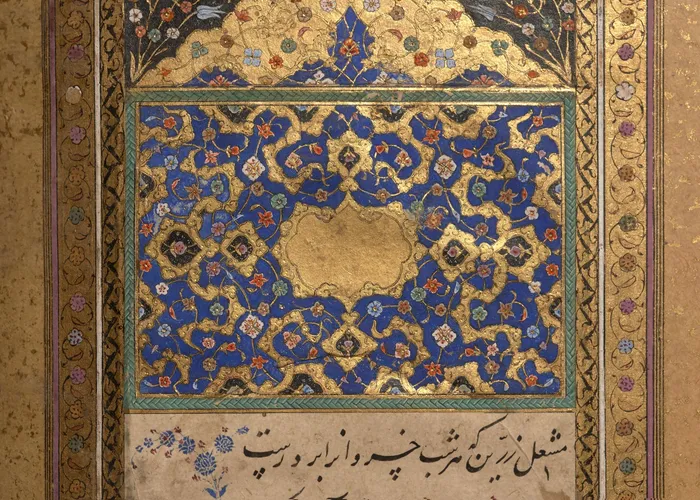 مشعل زرّین که هر شب خسروانرا بر درست